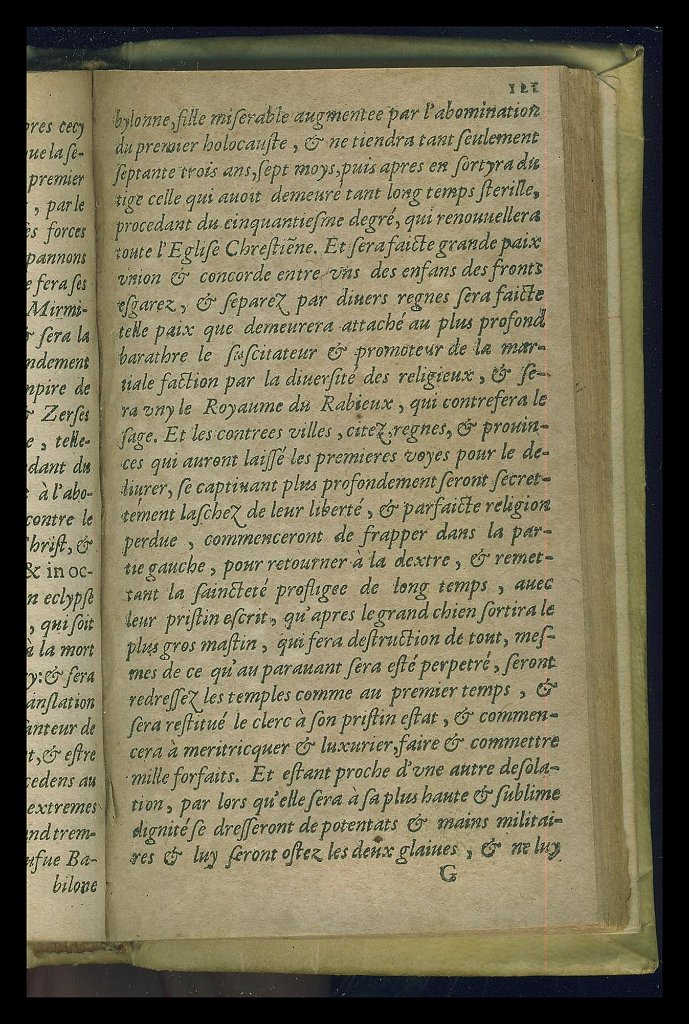 res cecy
ue la se-
premier
, par le
s forces
pannons
e fera ses
Mirmi-
sera la
ndement
mpire de
& Zerses
e, telle-
dant du
à l'abo-
contre le
hrist, &
& in oc-
n eclypse
, qui soit
à la mort
ry: & sera
anslation
anteur de
t, & estre
cedens au
extremes
and trem-
ufue Ba-
bilone
121
bylonne, fille miserable augmentee par l'abomination
du premier holocauste, & ne tiendra tant seulement
septante trois ans, sept moys, puis apres en sortyra du
tige celle qui auoit demeuré tant long temps sterille,
procedant du cinquantiesme degré, qui renouuellera
toute l'Eglise Chrestiẽne. Et sera faicte grande paix
vnion & concorde entre vns des enfans des fronts
esgarez, & separez par diuers regnes sera faicte
telle paix que demeurera attaché au plus profond
barathre le suscitateur & promoteur de la mar-
tiale faction par la diuersité des religieux, & se-
ra vny le Royaume du Rabieux, qui contrefera le
sage. Et les contrees villes, citez, regnes, & prouin-
ces qui auront laissé les premieres voyes pour le de-
liurer, se captiuant plus profondement seront secret-
tement laschez de leur liberté, & parfaicte religion
perdue, commenceront de frapper dans la par-
tie gauche, pour retourner à la dextre, & remet-
tant la saincteté profligee de long temps, auec
leur pristin escrit, qu'apres le grand chien sortira le
plus gros mastin, qui fera destruction de tout, mes-
mes de ce qu'au parauant sera esté perpetré, seront
redressez les temples comme au premier temps, &
sera restitué le clerc à son pristin estat, & commen-
cera à meritricquer & luxurier, faire & commettre
mille forfaits. Et estant proche d'vne autre desola-
tion, par lors qu'elle sera à sa plus haute & sublime
dignité se dresseront de potentats & mains militai-
res & luy seront ostez les deux glaiues, & ne luy
G